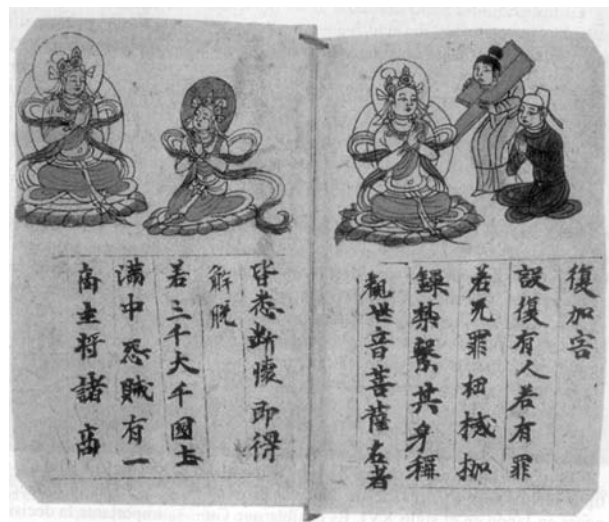 復加害
設復有人若有罪
若无罪杻械枷
鏁禁繫其身稱
觀世音菩薩名者
皆悉斷壞即得
解脱
若三千大千國土
滿中怨賊有一
商主將諸商